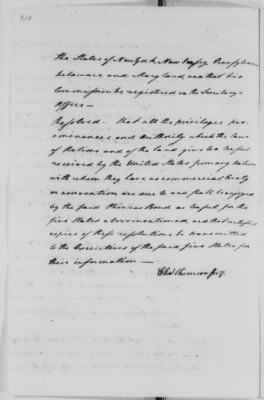 the States of New York New Jersey Pensylvania
Delaware and Maryland, and that his
Commission be registered in the Secretary's
Office —
Resolved. That all the privileges pre-
eminences and authority which the laws
of Nations and of the land, give to a Consul
received by the United States from any nation
with whom they have no commercial treaty
or convention are due to and shall be enjoyed
by the said Phineas Bond as Consul for the
five States abovementioned, and that certified
copies of these resolutions be transmitted
to the Executives of the said five States for
their information —
Chas Thomson Secy.